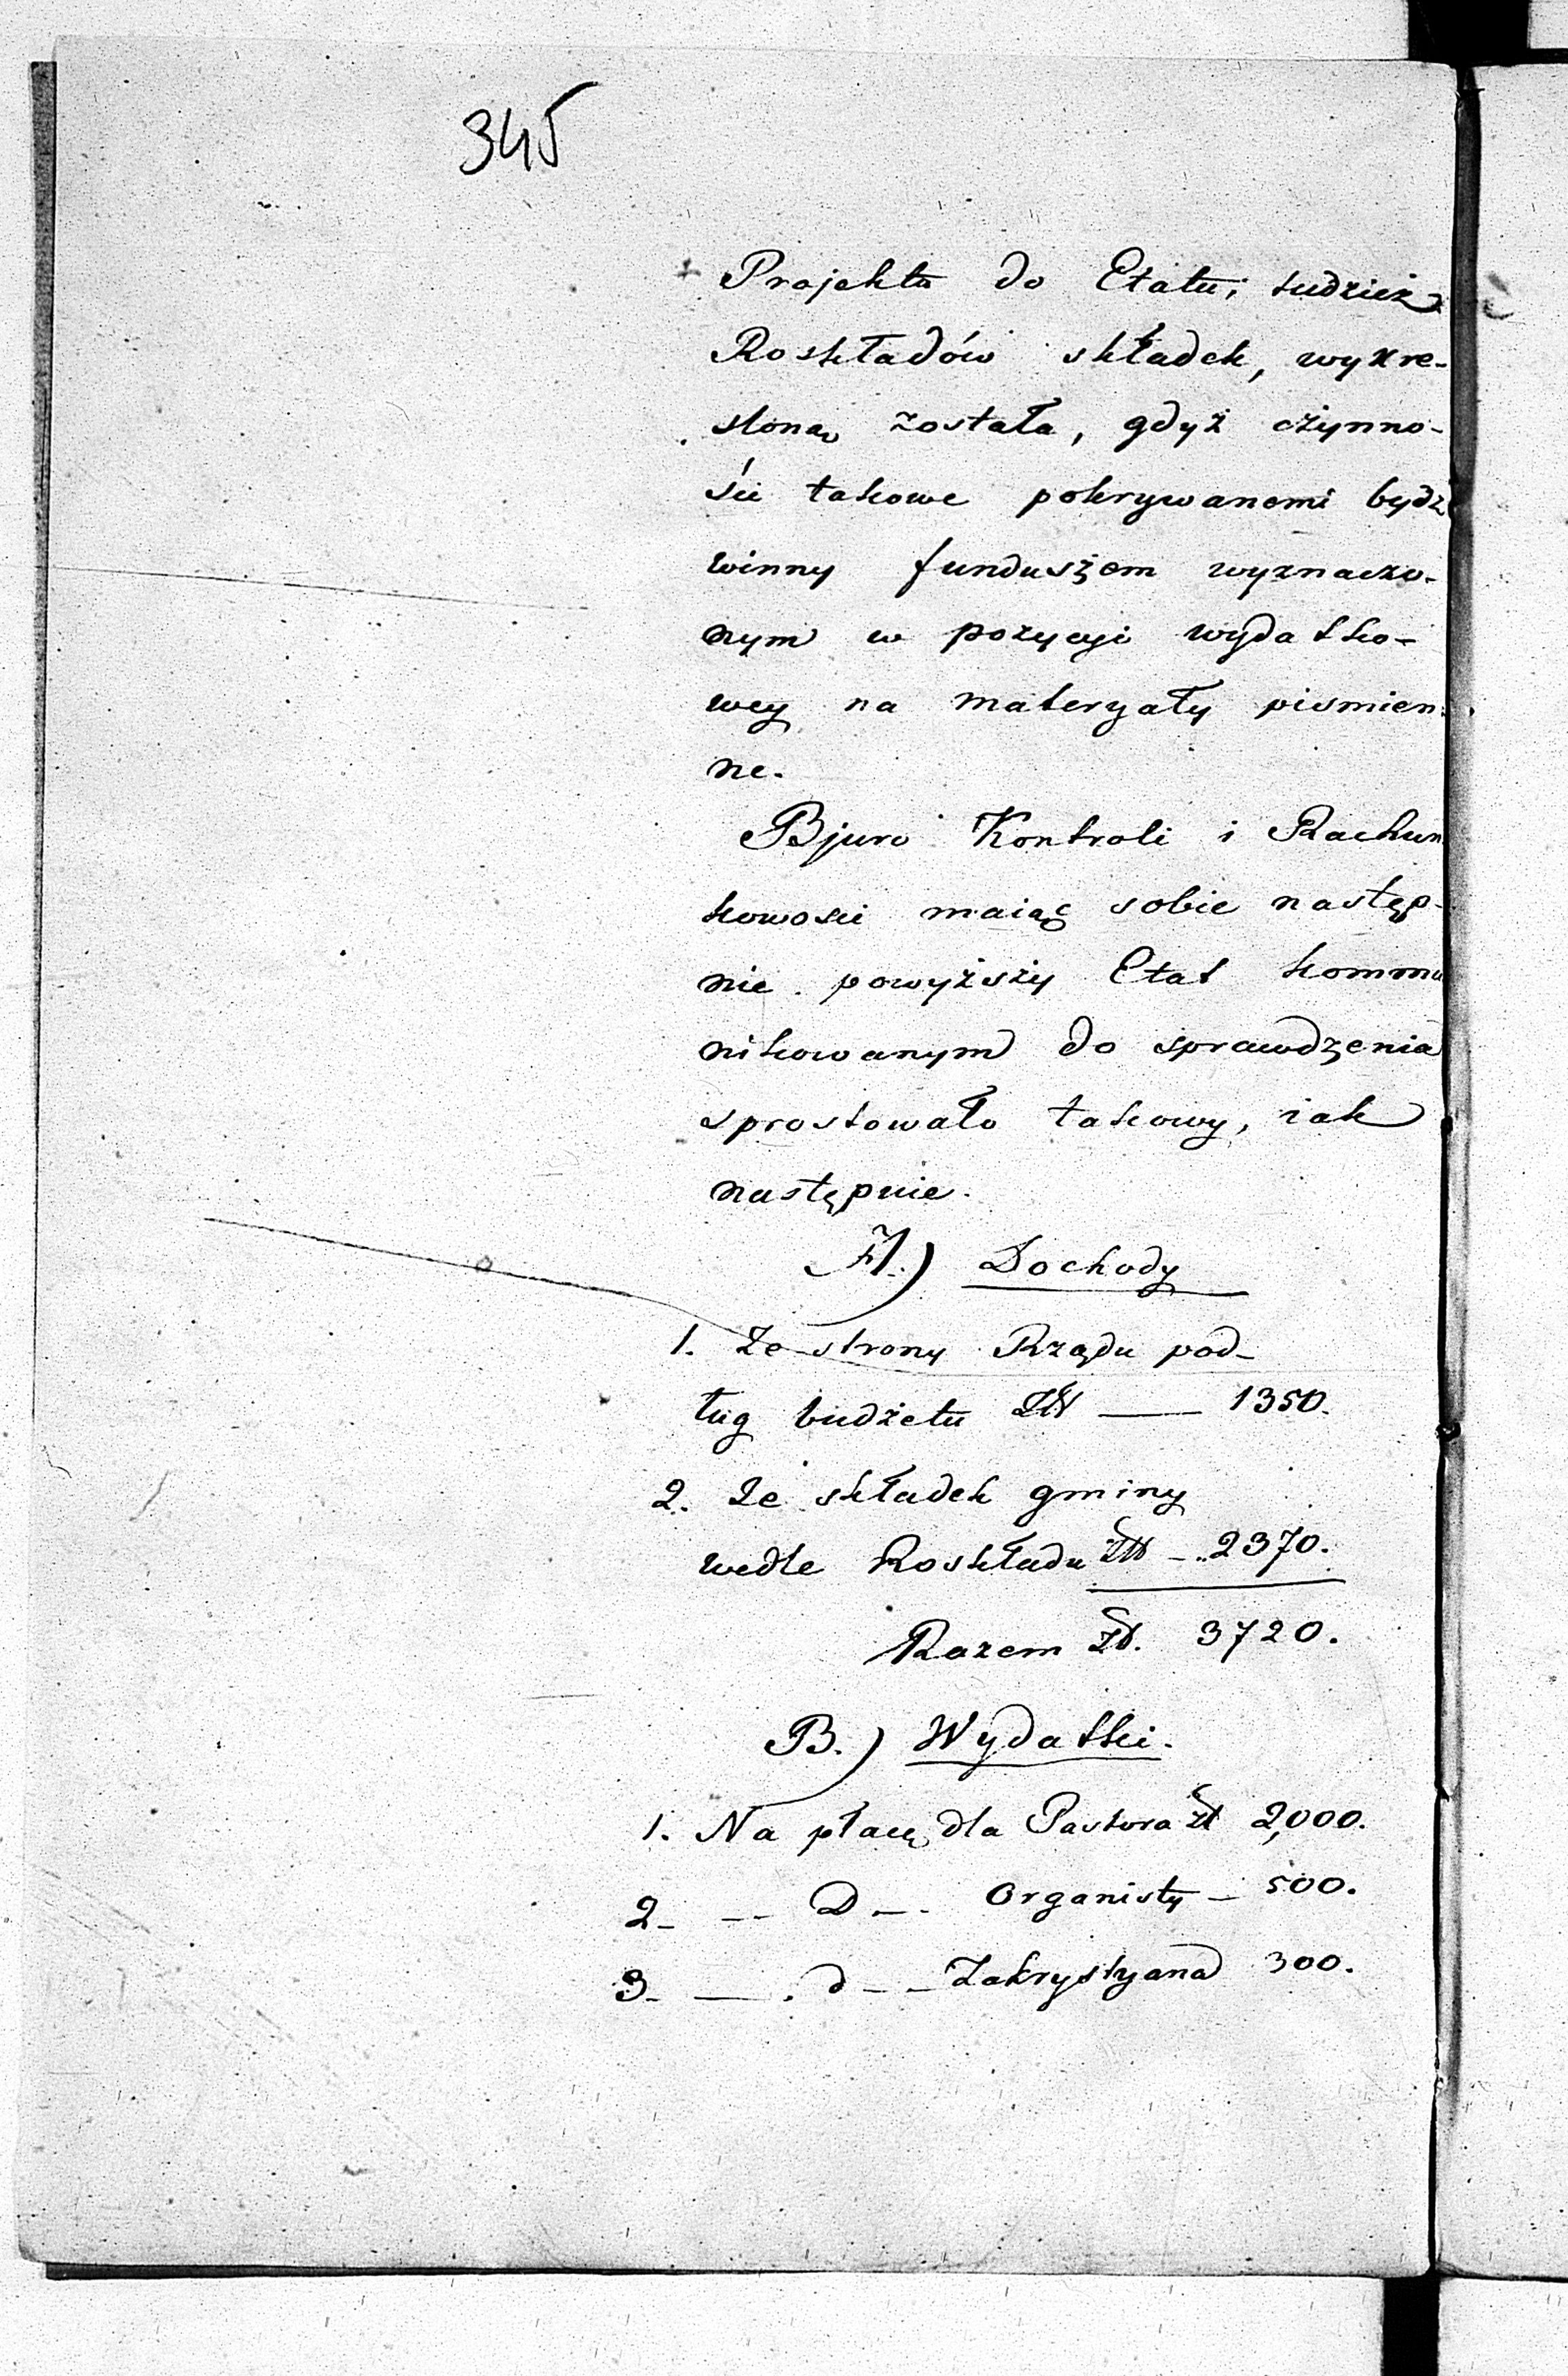 345
Projektu do Etatu, tudzież
Roskładów składek, wykre-
sloną została, gdyż czynno-
ście takowe pokrywanemi bydź
winny funduszem wyznaczo-
nym w pozycyi wydatko-
wey na materyały pismien-
ne.
Bjuro Kontroli i Rachun
kowosci maiąc sobie następ-
nie powyższy Etat kommu
nikowanym do sprawdzenia
sprostowało takowy, iak
następuie.
A.) Dochody
1. Ze strony Rządu pod-
ług budżetu Zł — 1350.
2. Ze składek gminy
wedle Roskładu Zł — 2370.
Razem Zł. 3720.
B.) Wydatki.
1. Na płacę dla Pastora zł 2,000.
2 — — D — Organisty — 500.
3 — — d — — Zakrystyana 300.